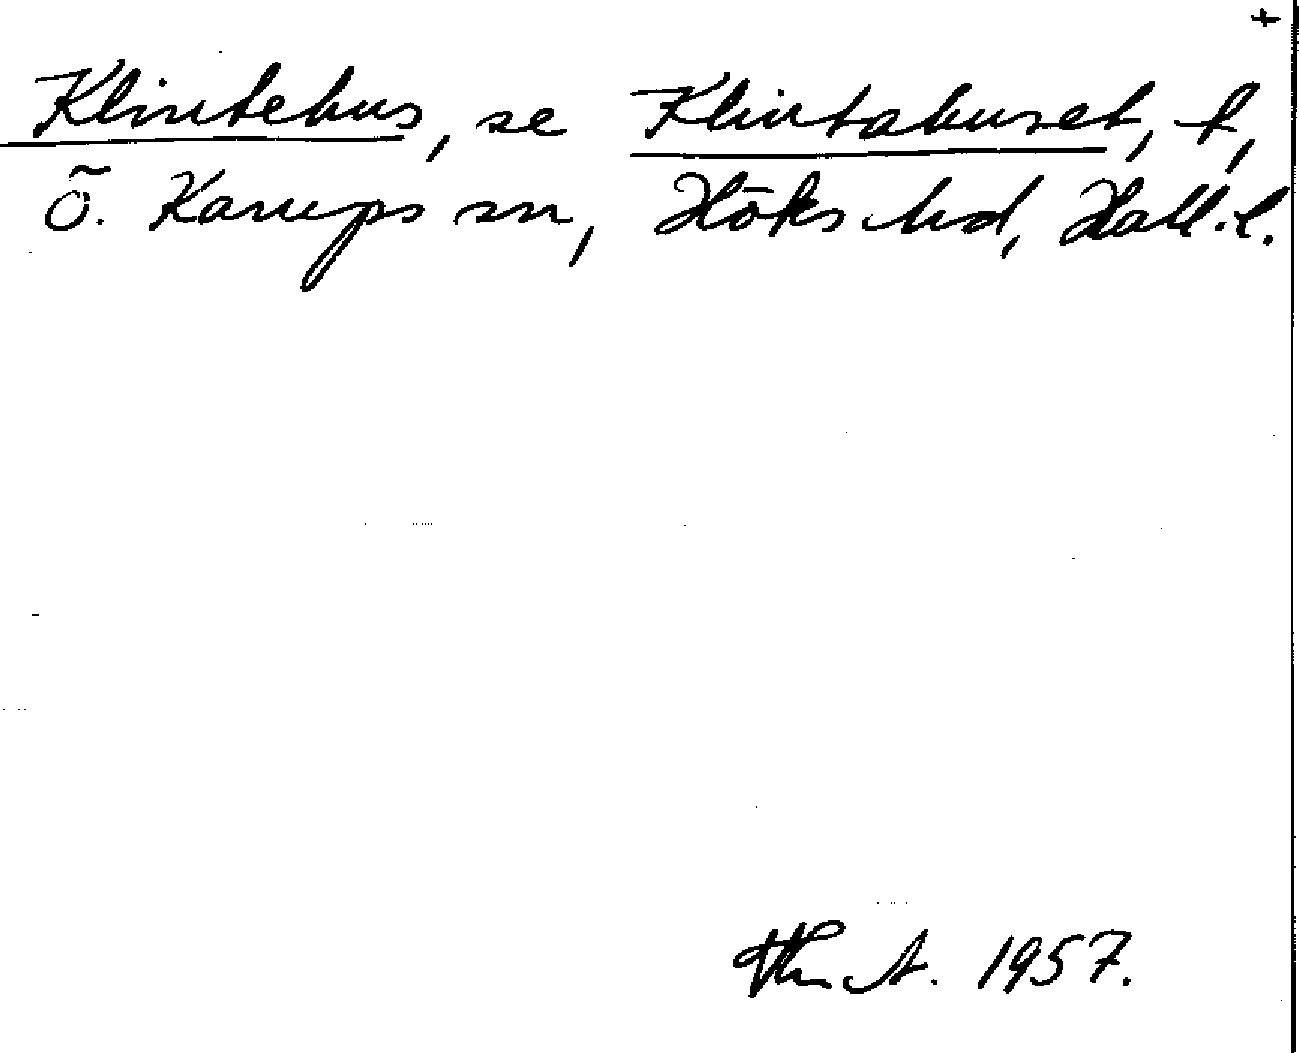 +
Klintehus, se Klintahuset, f,
Ö. Karups sn, Höks hd, Hall. l.
A. 1957.